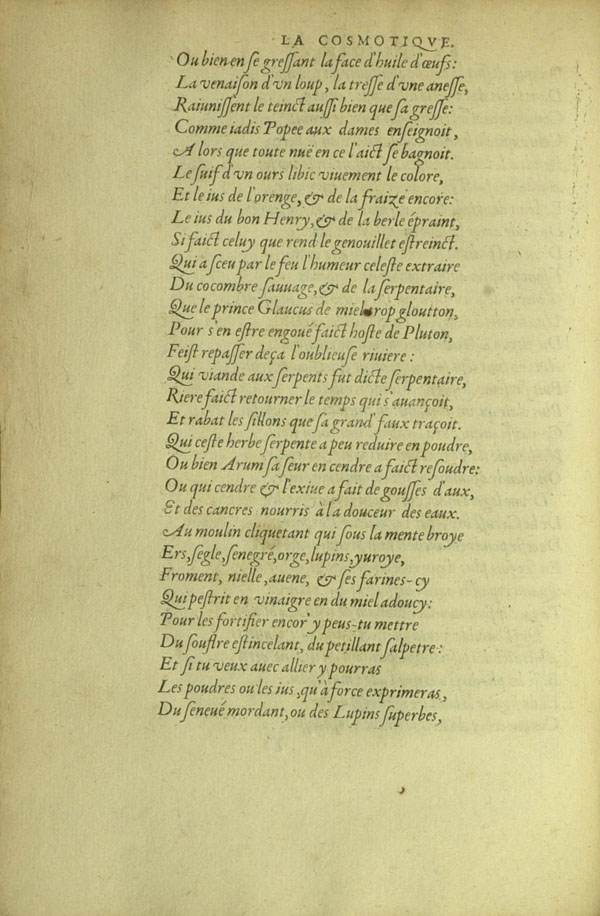 LA COSMOTIQVE.
Ou bien en ſe greſſant la face d'huile d'œufs:
La venaiſon d'vn loup, la treſſe d'vne aneſſe,
Raiuniſſent le teinct auſſi bien que ſa greſſe:
Comme iadis Popee aux dames enſeignoit,
A lors que toute nuë en ce l'aict ſe bagnoit.
Le ſuif d'vn ours libic viuement le colore,
Et le ius de l'orenge, & de la fraize encore:
Le ius du bon Henry, & de la berle épraint,
Si faict celuy que rend le genouillet eſtreinct.
Qui a ſceu par le feu l'humeur celeſte extraire
Du cocombre ſauuage, & de la ſerpentaire,
Que le prince Glaucus de miel trop gloutton,
Pour s'en eſtre engoué faict hoſte de Pluton,
Feiſt repaſſer deça l'oublieuſe riuiere:
Qui viande aux ſerpents fut dicte ſerpentaire,
Riere faict retourner le temps qui s'auançoit,
Et rabat les ſillons que ſa grand' faux traçoit.
Qui ceſte herbe ſerpente a peu reduire en poudre,
Ou bien Arum ſa ſeur en cendre a faict reſoudre:
Ou qui cendre & l'exiue a fait de gouſſes d'aux,
Et des cancres nourris à la douceur des eaux.
Au moulin cliquetant qui ſous la mente broye
Ers, ſegle, ſenegré, orge, lupins, yuroye,
Froment, nielle, auene, & ſes farines-cy
Qui peſtrit en vinaigre en du miel adoucy:
Pour les fortifier encor' y peus-tu mettre
Du ſouſtre eſtincelant, du petillant ſalpetre:
Et ſi tu veux auec allier y pourras
Les poudres ou les ius, qu'à force exprimeras,
Du ſeneué mordant, ou des Lupins ſuperbes,